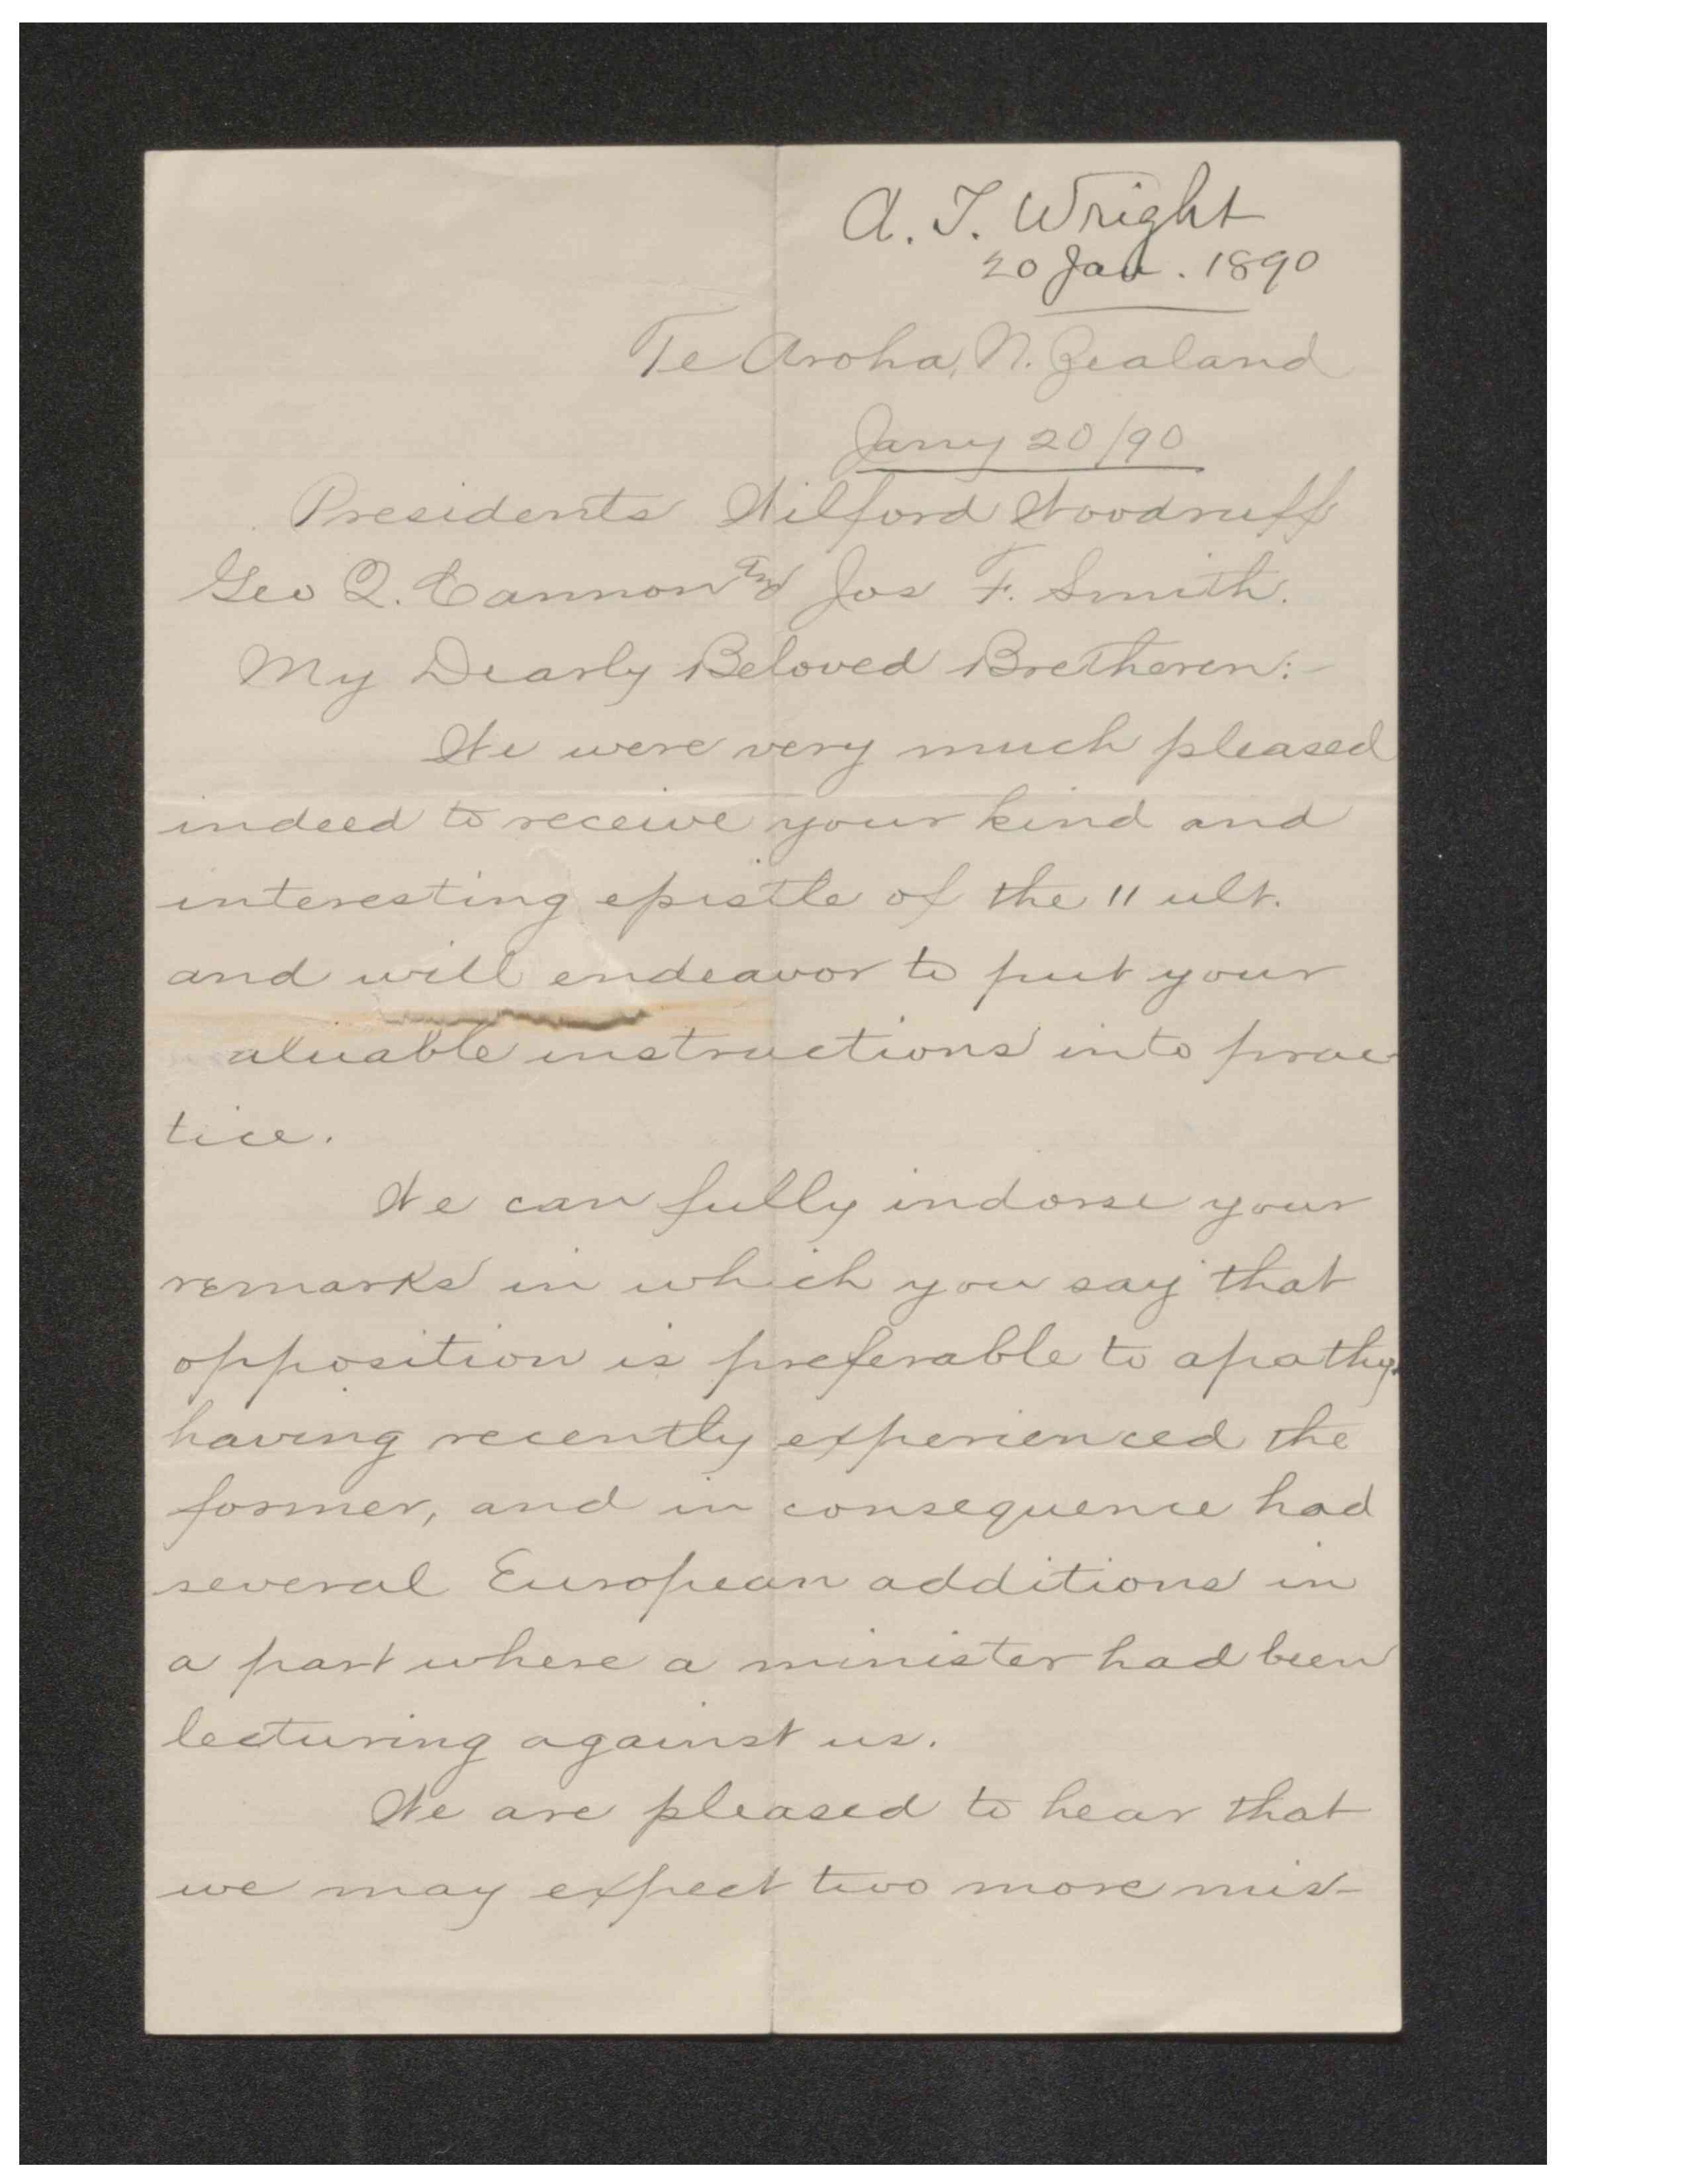 A. T. Wright
20 Jan. 1890
Te Aroha, N. Zealand
Jany 20/90
Presidents Wilford Woodruff
Geo Q. Cannon and Jos F. Smith.
My Dearly Beloved Bretheren:-
We were very much pleased
indeed to receive your kind and
interesting epistle of the 11 ult.
and will endeavor to put your
aluable instructions into prac-
tice.
We can fully indorse your
remarks in which you say that
opposition is preferable to apathy.
having recently experienced the
former, and in consequence had
several European additions in
a part where a minister had been
lecturing against us.
We are pleased to hear that
we may expect two more mis-